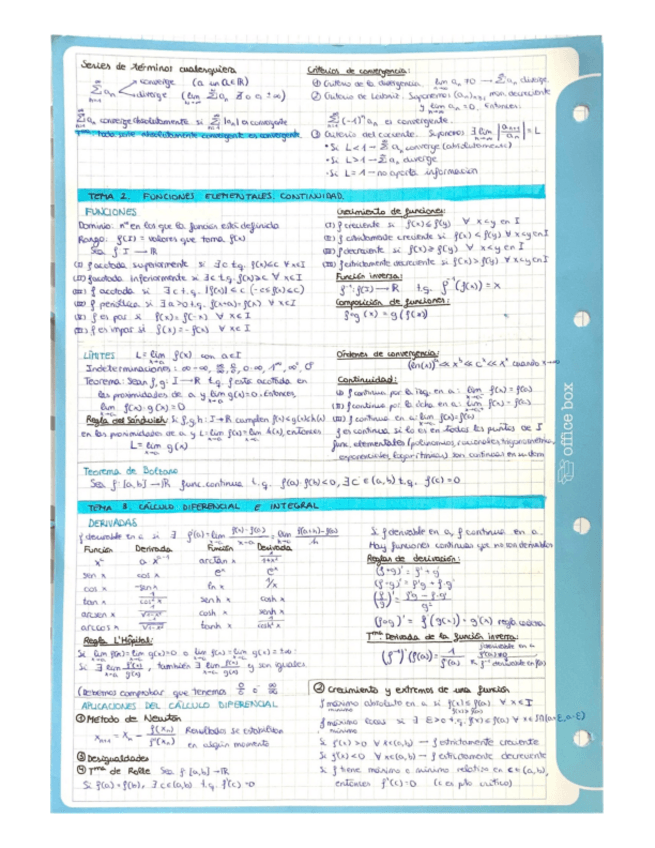 Series de términos cualesquiera
∑ aₙ converge (a un a∈ℝ)
diverge (lim ∑aₙ = ∞)
∑aₙ converge absolutamente si ∑|aₙ| es convergente
Tma: toda serie absolutamente convergente es convergente.
Criterios de convergencia:
① Criterio de la divergencia. lim aₙ ≠ 0 → ∑aₙ diverge
② Criterio de Leibniz. Suponemos (aₙ)ₙ≥₁ mon. decreciente
y lim aₙ = 0. Entonces:
∑(-1)ⁿ aₙ es convergente.
③ Criterio del cociente. Suponemos ∃ lim |aₙ₊₁/aₙ| = L
• Si L<1 → ∑aₙ converge (absolutamente)
• Si L>1 → ∑aₙ diverge
• Si L=1 → no aporta información
TEMA 2. FUNCIONES ELEMENTALES. CONTINUIDAD.
FUNCIONES
Dominio: nos en los que la función está definida
Rango: f(I) = valores que toma f(x)
Sea f: I → ℝ
(I) f acotada superiormente si ∃c t.q. f(x)≤c ∀x∈I
(II) f acotada inferiormente si ∃c t.q. f(x)≥c ∀x∈I
(III) f acotada si ∃c t.q. |f(x)|≤c (-c≤f(x)≤c)
f periódica si ∃a>0 t.q. f(x+a)=f(x) ∀x∈I
f es par si f(x)=f(-x) ∀x∈I
f es impar si f(x)=-f(-x) ∀x∈I
Crecimiento de funciones:
(I) f creciente si f(x)≤f(y) ∀x<y en I
(II) f estrictamente creciente si f(x)<f(y) ∀x<y en I
(III) f decreciente si f(x)≥f(y) ∀x<y en I
f estrictamente decreciente si f(x)>f(y) ∀x<y en I
Función inversa:
f⁻¹: f(I) → ℝ t.q. f⁻¹(f(x)) = x
Composición de funciones:
f∘g (x) = g(f(x))
LÍMITES L = lim f(x) con a∈I
Indeterminaciones: ∞-∞, ∞/∞, 0/0, 0·∞, 1^∞, ∞⁰, 0⁰
Teorema: Sean f,g: I→ℝ t.q. f está acotada en
las proximidades de a y lim g(x)=0. Entonces,
lim f(x)·g(x)=0
Regla del Sándwich: Si f,g,h: I→ℝ cumplen f(x)≤g(x)≤h(x)
en las proximidades de a y L=lim f(x)=lim h(x), entonces
L = lim g(x)
Órdenes de convergencia:
(ln(x))ᵃ ≪ xᵇ ≪ cˣ ≪ xˣ cuando x→∞
Continuidad:
(I) f continua por la izq. en a: lim f(x) = f(a)
(II) f continua por la dcha. en a: lim f(x) = f(a)
(III) f continua en a: lim f(x)=f(a)
f es continua si lo es en todos los puntos de I
func. elementales (polinomios, racionales, trigonométricas,
exponenciales, logarítmicas) son continuas en su dom
Teorema de Bolzano
Sea f: [a,b] → ℝ func. continua t.q. f(a)·f(b)<0, ∃c∈(a,b) t.q. f(c)=0
TEMA 3. CÁLCULO DIFERENCIAL E INTEGRAL
DERIVADAS
Función Derivada Función Derivada
arctan x 1/(1+x²)
sen x cos x eˣ eˣ
cos x -sen x ln x 1/x
tan x 1/cos² x senh x cosh x
arcsen x cosh x senh x
arccos x tanh x 1/cosh² x
Regla L'Hôpital:
Si lim f(x)=lim g(x)=0 o lim f(x)=lim g(x)=±∞:
Si ∃ lim f'(x)/g'(x), también ∃ lim f(x)/g(x) y son iguales
(debemos comprobar que tenemos 0/0 o ∞/∞)
Si f derivable en a, f continua en a.
Hay funciones continuas que no son derivables
Reglas de derivación:
(f+g)' = f'+g'
(f·g)' = f'g + f·g'
(f/g)' = (f'g - f·g')/g²
regla cadena
Tma: Derivada de la función inversa:
(f⁻¹)'(f(a)) = 1/f'(a)
f derivable en a
f'(a)≠0
f⁻¹ derivable en f(a)
APLICACIONES DEL CÁLCULO DIFERENCIAL
① Método de Newton
xₙ₊₁ = xₙ - f(xₙ)/f'(xₙ) Resultados se estabilizan
en algún momento
③ Desigualdades
④ Tma de Rolle Sea f: [a,b] → ℝ
Si f(a)=f(b), ∃c∈(a,b) t.q. f'(c)=0
② Crecimiento y extremos de una función
f máximo absoluto en a si f(x)≤f(a) ∀x∈I
mínimo f(x)≥f(a)
f máximo local si ∃ε>0 t.q. f(x)≤f(a) ∀x∈I∩(a+ε,a-ε)
mínimo
Si f'(x)>0 ∀x∈(a,b) → f estrictamente creciente
Si f'(x)<0 ∀x∈(a,b) → f estrictamente decreciente
Si f tiene máximo o mínimo relativo en c∈(a,b),
entonces f'(c)=0 (c es pto crítico)
office box